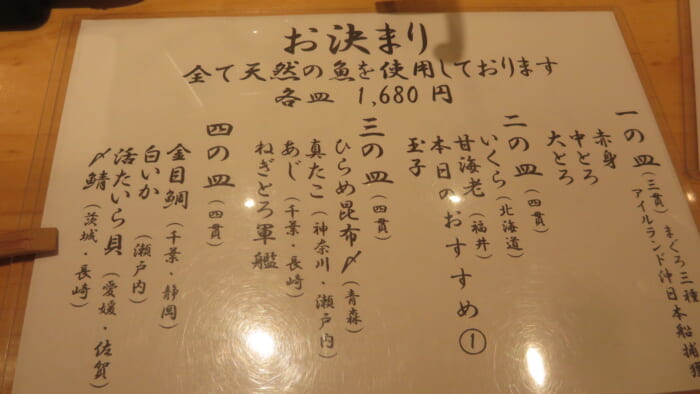 お決まり
全て天然の魚を使用しております
各皿 1,680 円
一の皿(三貫)まぐろ三種
アイルランド沖日本船捕獲
赤身
中とろ
大とろ
二の皿(四貫)
いくら(北海道)
甘海老(福井)
本日のおすすめ①
玉子
三の皿(四貫)
ひらめ昆布〆(青森)
真たこ(神奈川・瀬戸内)
あじ(千葉・長崎)
ねぎとろ軍艦
四の皿(四貫)
金目鯛(千葉・静岡)
白いか(瀬戸内)
活たいら貝(愛媛・佐賀)
〆鯖(茨城・長崎)